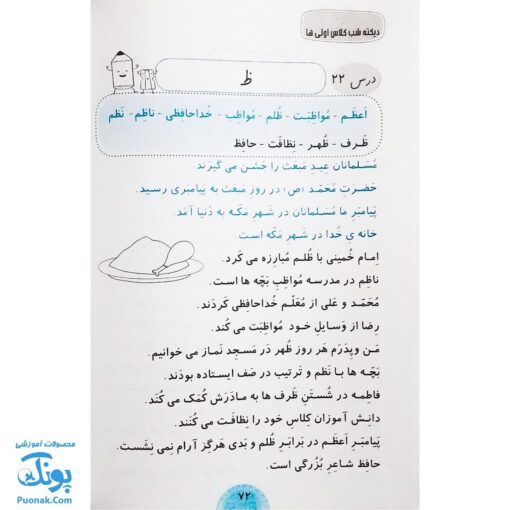 دیکته شب کلاس اولی ها
درس ۲۲
ظ
اَعظَم - مُواظِبَت - ظُلم - مُواظِب - خُداحافِظی - ناظِم - نَظم
ظَرف - ظُهر - نِظافَت - حافِظ
مُسَلمانان عِیدِ مَبعَث را جَشن می گیرَند.
حَضرَتِ مُحَمَد (ص) در روزِ مَبعَث به پیامبَری رِسید.
پیامبَرِ ما مُسَلمانان در شَهرِ مَکه به دُنیا آمَد.
خانه ی خُدا در شَهرِ مَکه است.
اِمام خُمینی با ظُلم مُبارِزه می کَرد.
ناظِم در مدرسه مُواظِبِ بَچّه ها است.
مُحَمَد و عَلی از مُعَلّم خُداحافِظی کَردَند.
رِضا از وَسایلِ خود مُواظِبَت می کُند.
مَن و پِدَرَم هَر روز ظُهر دَر مَسجِد نَماز می خوانیم.
بَچّه ها با نَظم و تَرتیب در صَف ایستاده بودَند.
فاطِمه در شُستَنِ ظَرف ها به مادَرَش کُمَک می کُند.
دانِش آموزان کِلاسِ خود را نِظافَت می کُنَند.
پیامبَرِ اَعظَم در بَرابَرِ ظُلم و بَدی هَرگِز آرام نِمی نِشَست.
حافِظ شاعِرِ بُزُرگی است.
۷۲
محصولات آموزشی
پونک
Puonak.Com